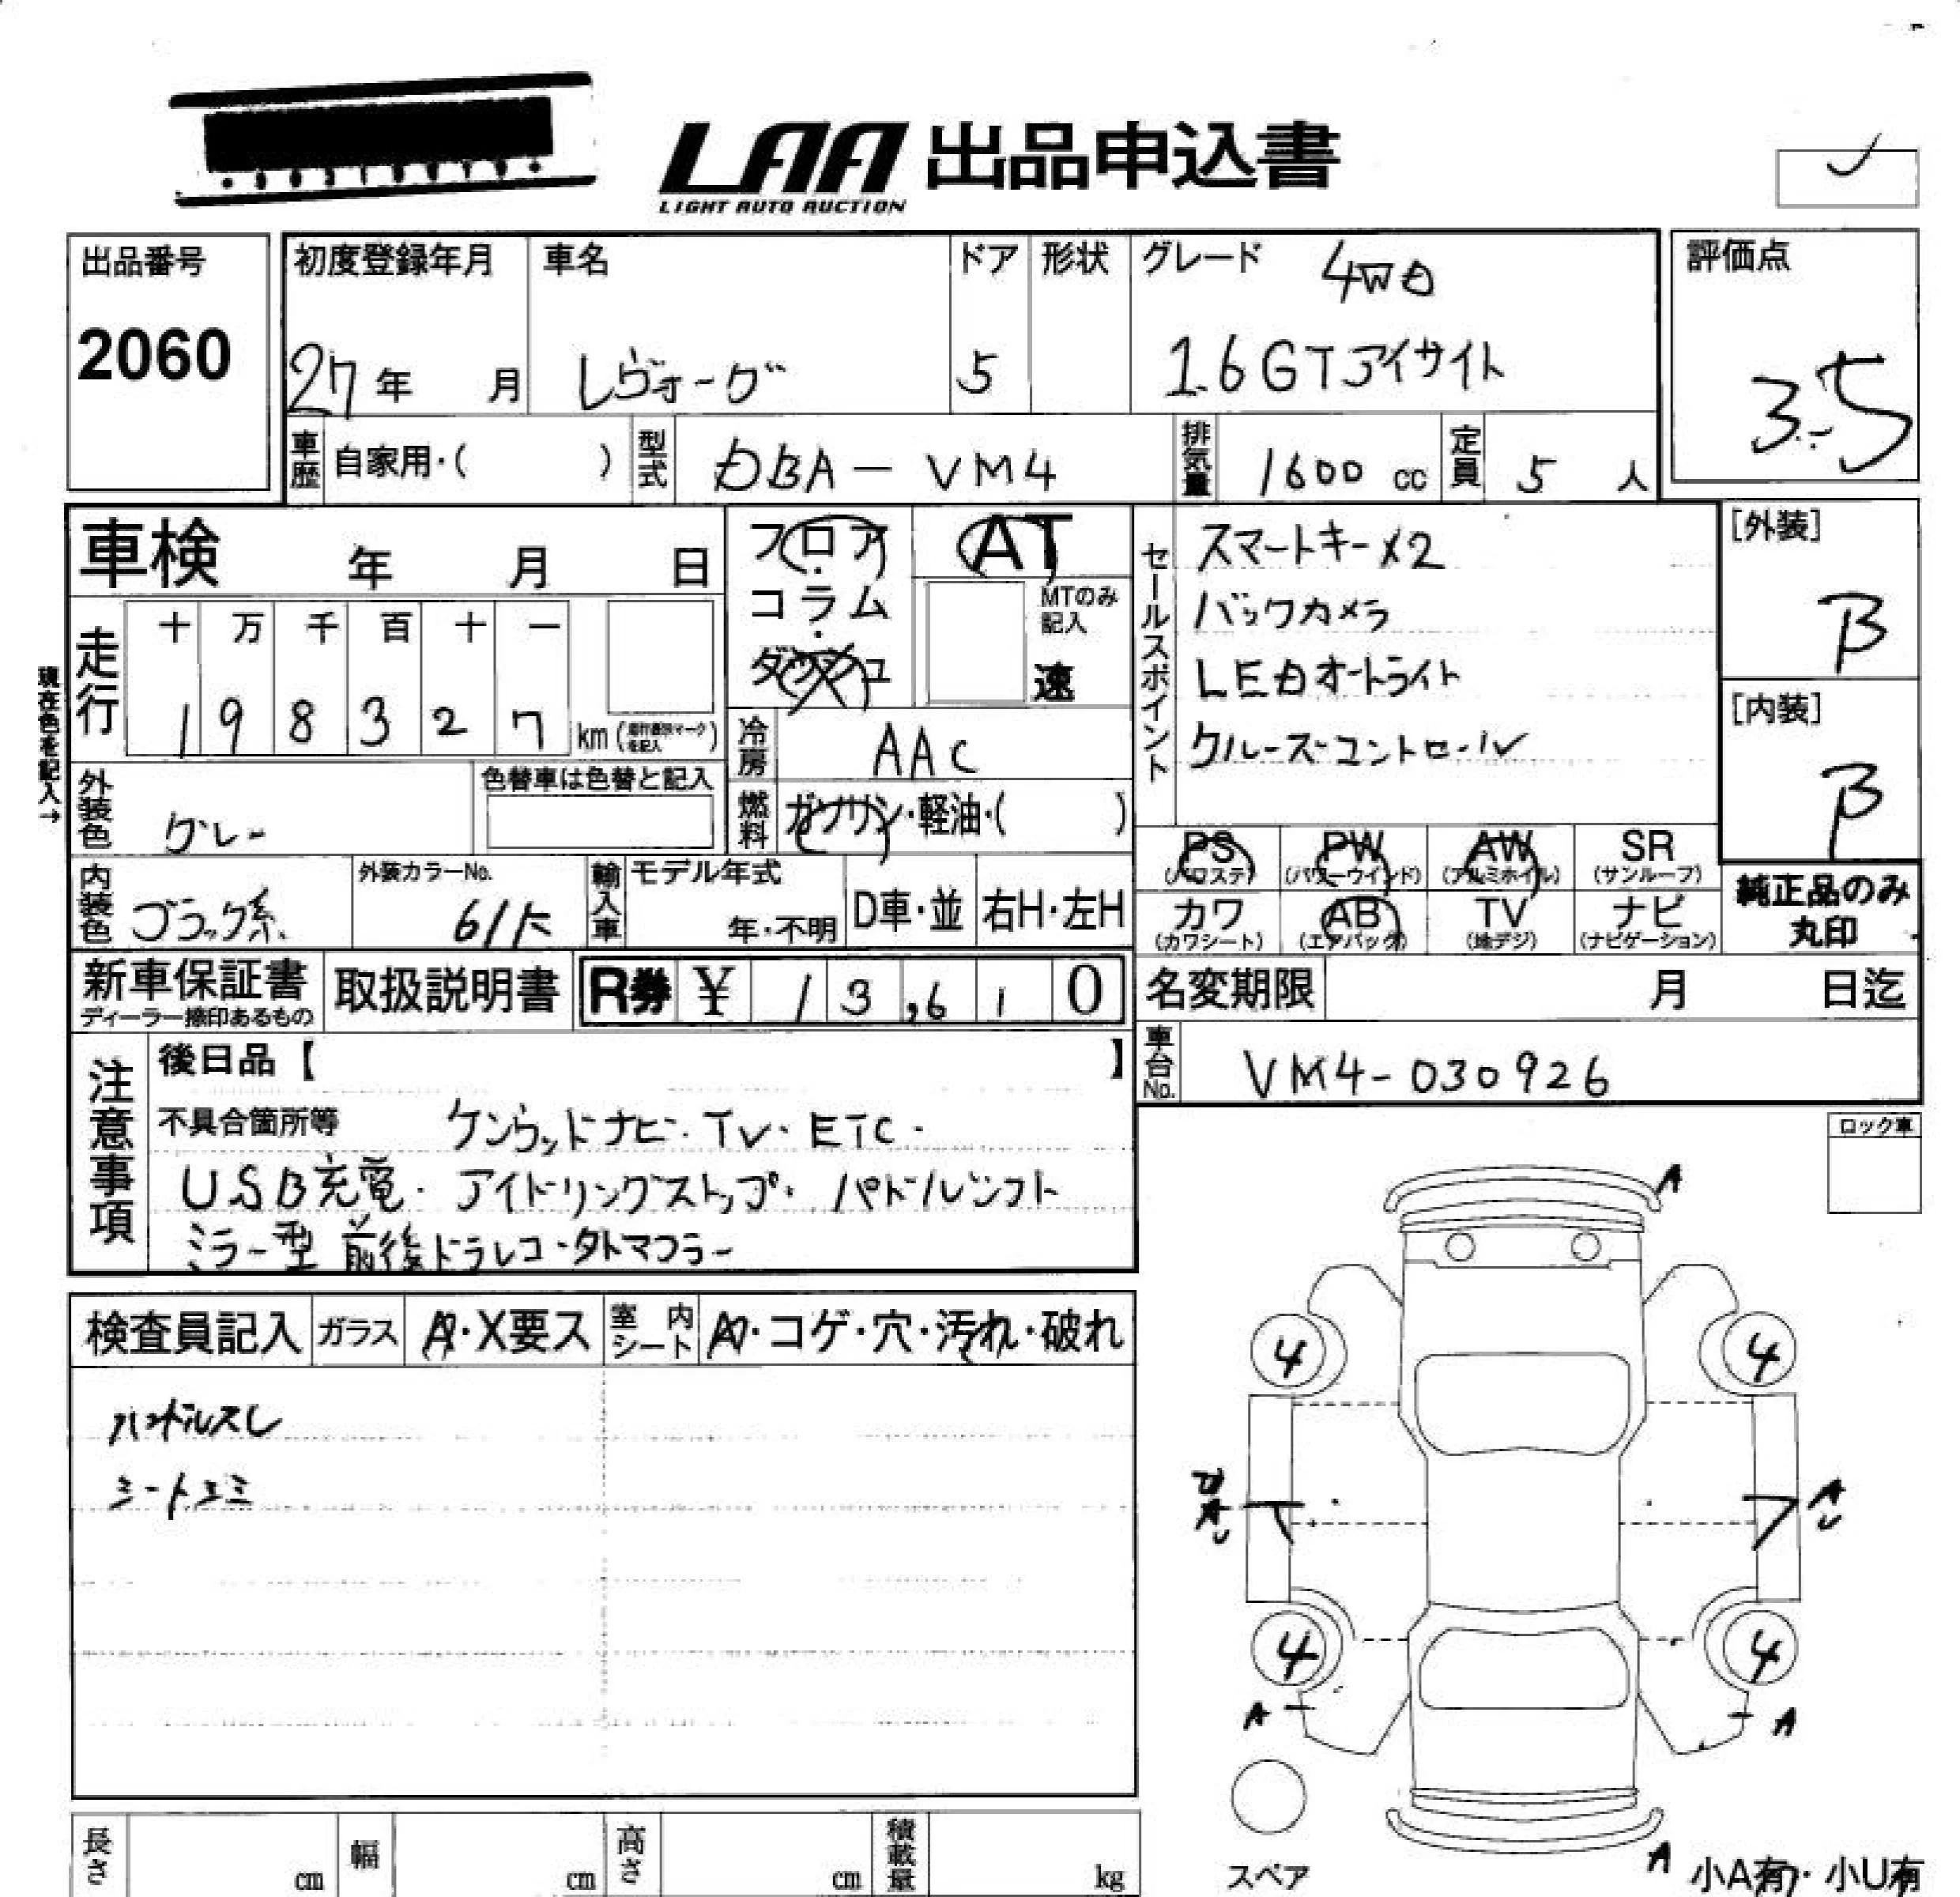 LAA 出品申込書
LIGHT AUTO AUCTION
出品番号
2060
初度登録年月
27年 月
車名
レヴォーグ
ドア
5
形状
グレード 4WD
1.6GTアイサイト
評価点
3.5
車歴 自家用・( )
型式 DBA-VM4
排気量 1600 cc
定員 5 人
車検 年 月 日
フロア・コラム・ダッシュ
AT
MTのみ記入
速
走行
十 万 千 百 十 一
1 9 8 3 2 7 km
現在色を記入→
冷房 AAC
燃料 ガソリン・軽油・( )
外装色 グレー
色替車は色替と記入
内装色 ブラック系
外装カラーNo.
61K
輸入車 モデル年式
年・不明
D車・並
右H・左H
セールスポイント
スマートキー×2
バックカメラ
LEDオートライト
クルーズコントロール
[外装]
B
[内装]
B
PS (パワステ)
PW (パワーウインド)
AW (アルミホイル)
SR (サンルーフ)
カワ (カワシート)
AB (エアバッグ)
TV (地デジ)
ナビ (ナビゲーション)
純正品のみ
丸印
新車保証書
ディーラー捺印あるもの
取扱説明書
R券 ¥ 13,610
名変期限 月 日迄
車台No. VM4-030926
注意事項
後日品【 】
不具合箇所等 ケンウッドナビ・TV・ETC・
USB充電・アイドリングストップ・パドルシフト
ミラー型前後ドラレコ・外マフラー
ロック車
検査員記入
ガラス A・X要ス
室内シート
コゲ・穴・汚れ・破れ
ハンドルスレ
シート
A
4
4
A
4
4
A
A
A
スペア
小A有・小U有
長さ cm
幅 cm
高さ cm
積載量 kg